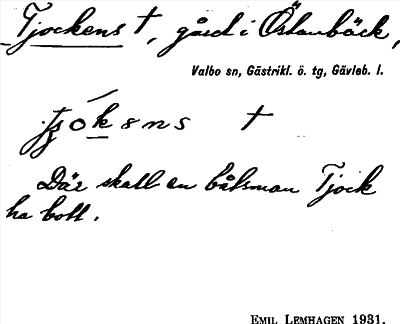 Tjockens †, gård i Östanbäck,
Valbo sn, Gästrikl. ö. tg, Gävleb. l.
†
Där skall en båtsman Tjock
ha bott.
EMIL LEMHAGEN 1931.